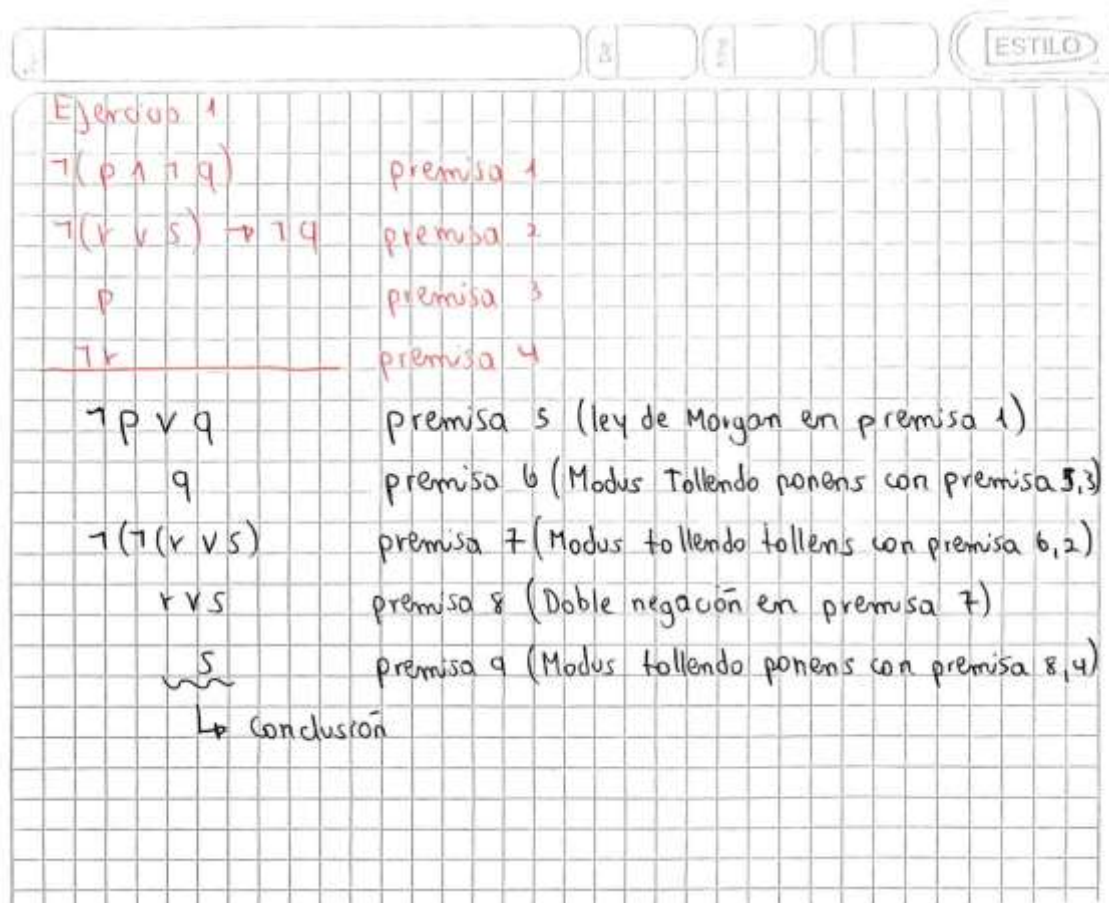 ESTILO
Ejercicio 1
¬(p ∧ ¬q) premisa 1
¬(r ∨ s) → ¬q premisa 2
p premisa 3
¬r premisa 4
¬p ∨ q premisa 5 (ley de Morgan en premisa 1)
q premisa 6 (Modus Tollendo ponens con premisa 5,3)
¬(¬(r ∨ s) premisa 7 (Modus tollendo tollens con premisa 6,2)
r ∨ s premisa 8 (Doble negación en premisa 7)
s premisa 9 (Modus tollendo ponens con premisa 8,4)
↳ Conclusión